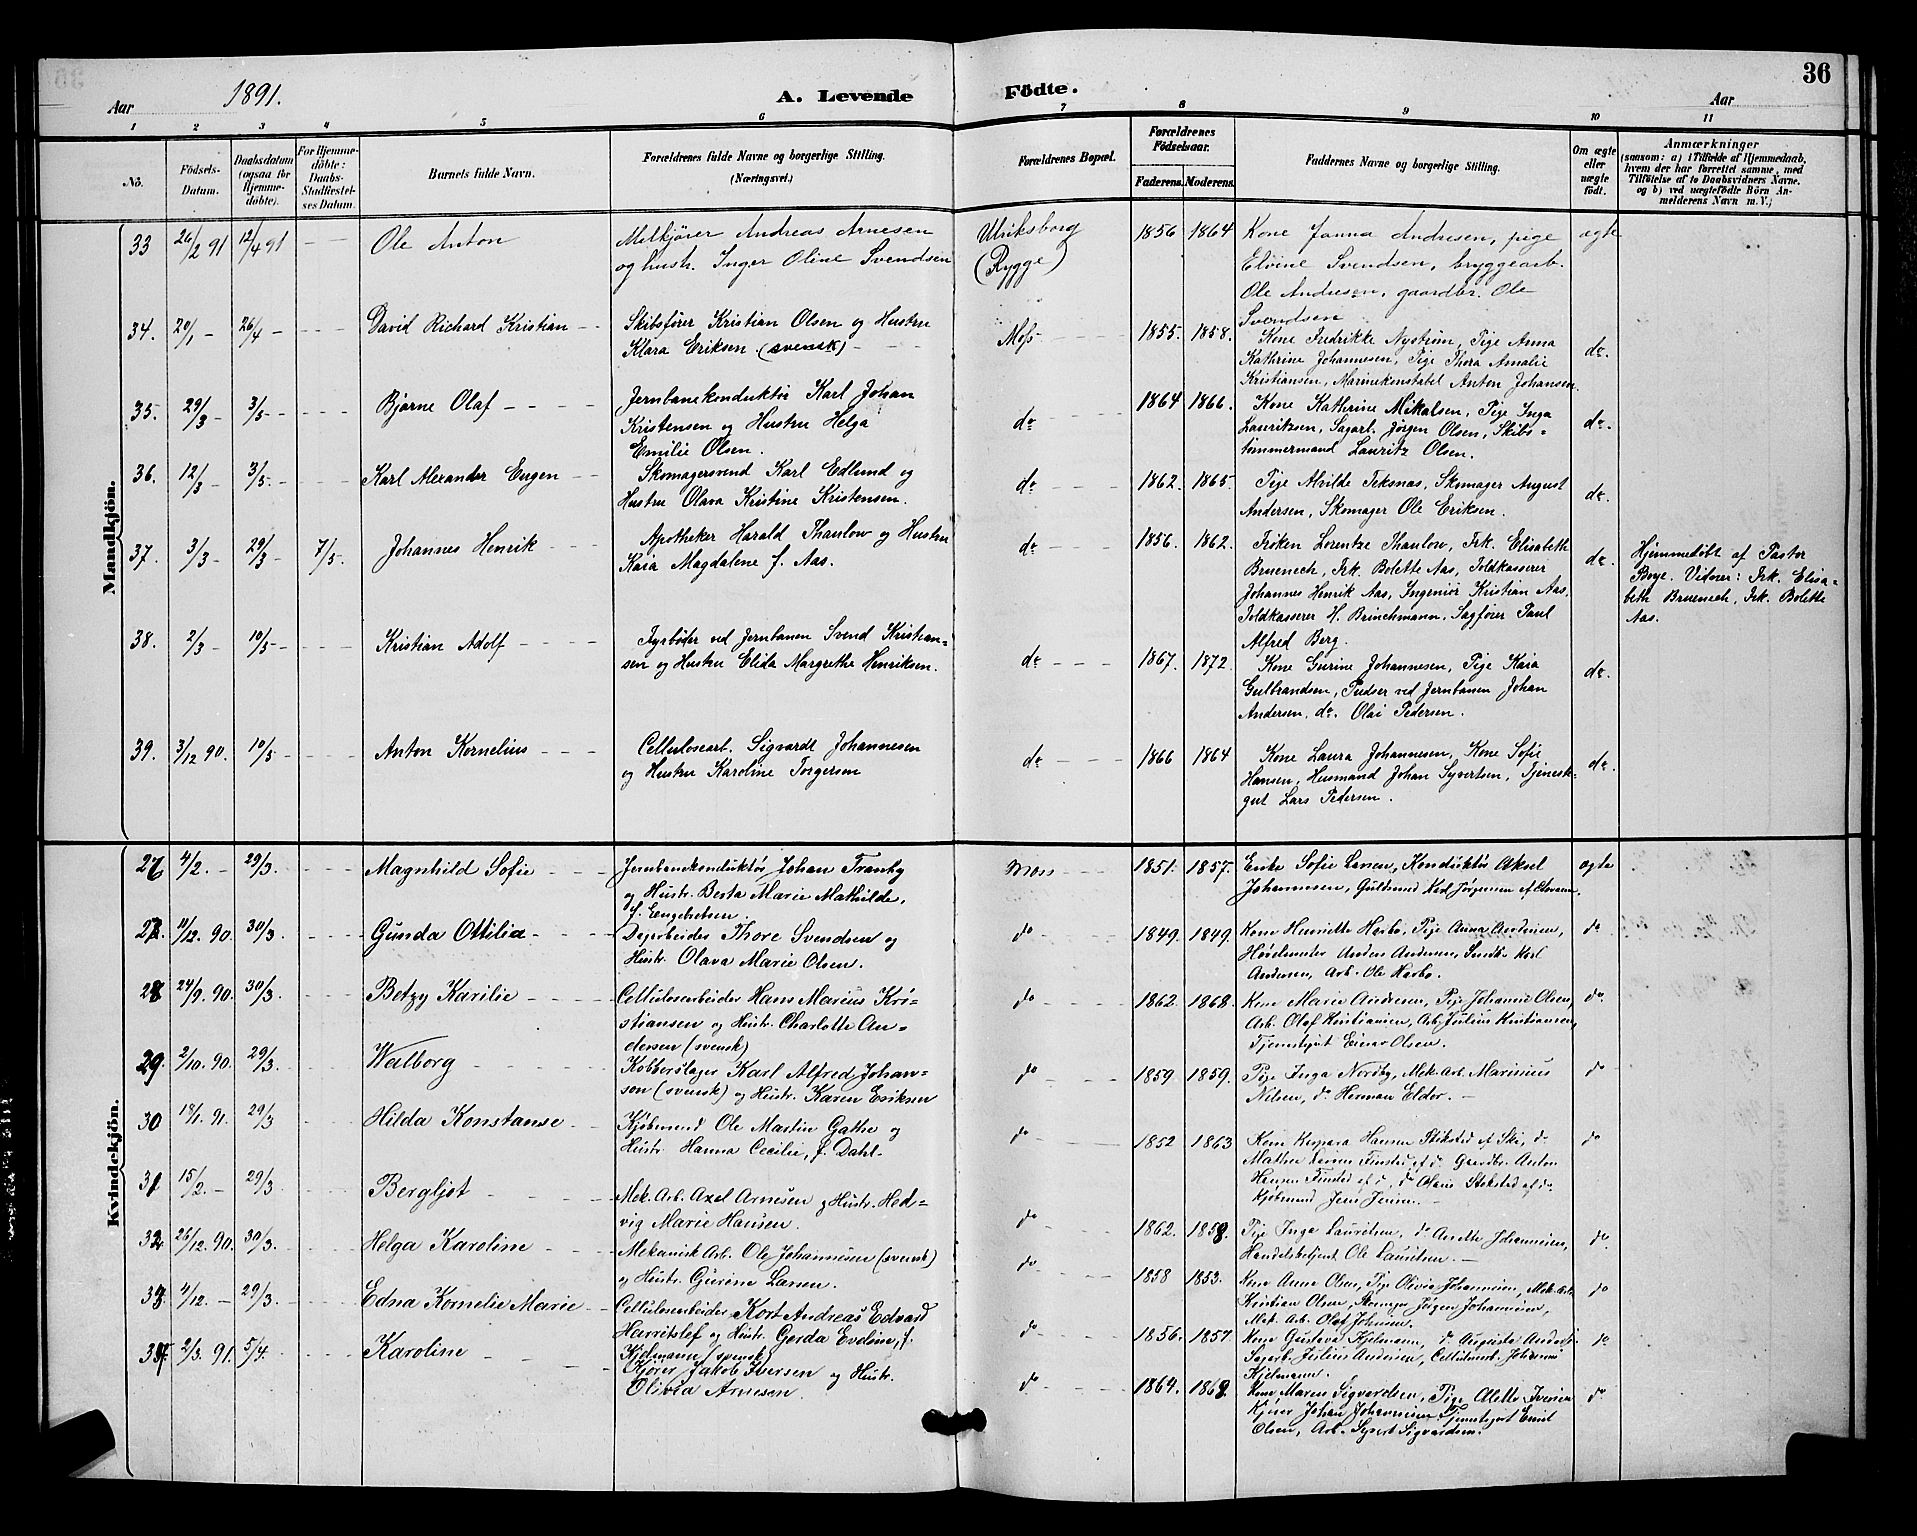 36
Aar 1891. A. Levende Födte. Aar
1 2 3 4 5 6 7 8 9 10 11
No. Födsels-Datum. Daabsdatum (ogsaa for Hjemme-döbte). For Hjemme-döbte: Daabs-Stadfæstel-ses Datum. Barnets fulde Navn. Forældrenes fulde Navne og borgerlige Stilling. (Næringsvei.) Forældrenes Bopæl. Forældrenes Födselsaar. Faderens. Moderens. Faddernes Navne og borgerlige Stilling. Om ægte eller uægte födt. Anmærkninger (saasom: a) i Tilfælde af Hjemmedaab, hvem der har forrettet samme, med Tilföielse af to Daabsvidners Navne, og b) ved uægtefödte Börn An-melderens Navn m. V.;)
Mandkjön.
33 26/2 91 12/4 91 Ole Anton
Melkjører Andreas Arnesen
og hustr. Inger Oline Svendsen
Ulriksborg
(Rygge)
1856 1864
Kone Janna Andresen, pige
Elvine Svendsen, bryggearb.
Ole Andresen, gaardbr. Ole
Svendsen
ægte
34. 20/1 - 26/4 - David Richard Kristian
Skibsfører Kristian Olsen og Hustru
Klara Eriksen (svensk)
Moss
1855. 1858.
Kone Fredrikke Nystrøm, Pige Anna
Kathrine Johannesen, Pige Thora Amalie
Kristiansen, Marinekonstabel Anton Johansen
do.
35. 29/3 - 3/5 - Bjarne Olaf
Jernbanekonduktør Karl Johan
Kristensen og Hustru Helga
Emilie Olsen.
do
1864 1866.
Kone Kathrine Mikalsen, Pige Inga
Lauritzsen, Sagarb. Jørgen Olsen, Skibs-
tømmermand Lauritz Olsen.
do.
36. 12/3 3/5 - Karl Alexander Eugen
Skomagersvend Karl Edlund og
Hustru Olava Kristine Kristensen.
do
1862. 1865.
Pige Alvilde Teksnas, Skomager August
Andersen, Skomager Ole Eriksen.
do.
37. 3/3 - 29/3 - 7/5. Johannes Henrik
Apotheker Harald Thaulow og Hustru
Kara Magdalene f. Aas.
do
1856. 1862.
Frøken Lorentze Thaulow, Frk. Elisabeth
Bruenech, Frk. Bolette Aas, Toldkasserer
Johannes Henrik Aas, Ingeniør Kristian Aas,
Toldkasserer H. Brinchmann, Sagfører Paul
Alfred Berg.
do.
Hjemmedøbt af Pastor
Boye. Vidner: Frk. Elisa-
beth Bruenech, Frk. Bolette
Aas.
38. 2/3 - 10/5 - Kristian Adolf
Fyrbøder ved Jernbanen Svend Kristian-
sen og Hustru Elida Margrethe Henriksen.
do
1867. 1872.
Kone Gurine Johannesen, Pige Kaia
Gulbrandsen, Pudser ved Jernbanen Johan
Andersen, do. Olai Pedersen.
do.
39. 3/12 90. 10/5 - Anton Kornelius
Cellulosearb. Sigvardt Johannesen
og Hustru Karoline Torgersen
do
1866 1864
Kone Laura Johannesen, Kone Sofie
Hansen, Husmand Johan Syvertsen, Tjeneste-
gut Lars Pedersen.
do.
Kvindekjön.
26 4/2. - 29/3. Magnhild Sofie
Jernbanekonduktør Johan Tranby
og Hustr. Berta Marie Mathilde,
f. Engebretsen.
Moss
1851. 1857.
Enke Sofie Larsen, Konduktør Aksel
Johannesen, Guldsmed Karl Jørgensen
ægte
27. 11/12. 90. 30/3. Gunda Ottilia
Dagarbeider Thore Svendsen og
Hustr. Olava Marie Olsen.
do
1849. 1849.
Kone Henriette Harbo, Pige Anna Andersen,
Anders Andersen, Karl
Andersen, Arb. Ole Harbo.
do
28 24/9. 90. 30/3. Betzy Karilie
Cellulosearbeider Hans Marius Kri-
stiansen og Hustr. Charlotte An-
dersen (svensk)
do
1862. 1868.
Kone Marie Andresen, Pige Johanne Olsen,
Arb. Olaf Kristiansen, Arb. Julius Kristiansen,
Tjenestgut Einar Olsen.
do
29. 2/10. 90. 29/3. Walborg
Kobberslager Karl Alfred Johan-
son (svensk) og Hustr. Karen Eriksen
do
1859. 1859.
Pige Inga Nordby, Mek. Arb. Marinius
Nilsen, do Herman Elder.
do
30 18/1. 91. 29/3 Hilda Konstanse
Kjøbmand Ole Martin Gathe og
Hustr. Hanna Cecilie, f. Dahl.
do
1852 1863
Kone Kaspara Hansen Stiksted af Ski, do
Mathea Larsen Finsted af do. Gaardbr. Anton
Hansen Finsted af do, do Olaus Stiksted af do
Kjøbmand Jens Jensen.
do
31 15/2. - 29/3 Bergljot
Mek. Arb. Axel Arnesen og Hustr. Hed-
vig Marie Hansen.
do
1862. 1858.
Pige Inga Lauritsen, do Anette Johannesen,
Handelsbetjent Ole Lauritsen.
do
32 26/12. 90. 30/3. Helga Karoline
Mekanisk Arb. Ole Johannesen (svensk)
og Hustr. Gurine Larsen.
do
1858 1853.
Kone Anna Olsen, Pige Olivia Johannesen, Mek. Arb.
Kristian Olsen, Jørgen Johannesen,
Mek. Arb. Olaf Johnsen.
do
33. 4/12. - 29/3. Edna Kornelie Marie
Cellulosearbeider Kort Andreas Edvard
Harritslef og Hustr. Gerda Eveline, f.
Kjelmann (svensk)
do
1856. 1857.
Kone Gustava Kjelmann, do Auguste Anders,
Sagarb. Julius Andersen, Cellulosearb. Johannes
Kjelmann.
do
34. 2/3. 91. 5/4. Karoline
Kjører Jakob Iversen og Hustr.
Olivia Arnesen.
do
1864. 1868.
Kone Maren Sigvardsen, Pige Alette Iversen
Kjører Johan Johannesen, Tjenestgut Emil
Olsen, Arb. Syvert Sigvardsen.
do